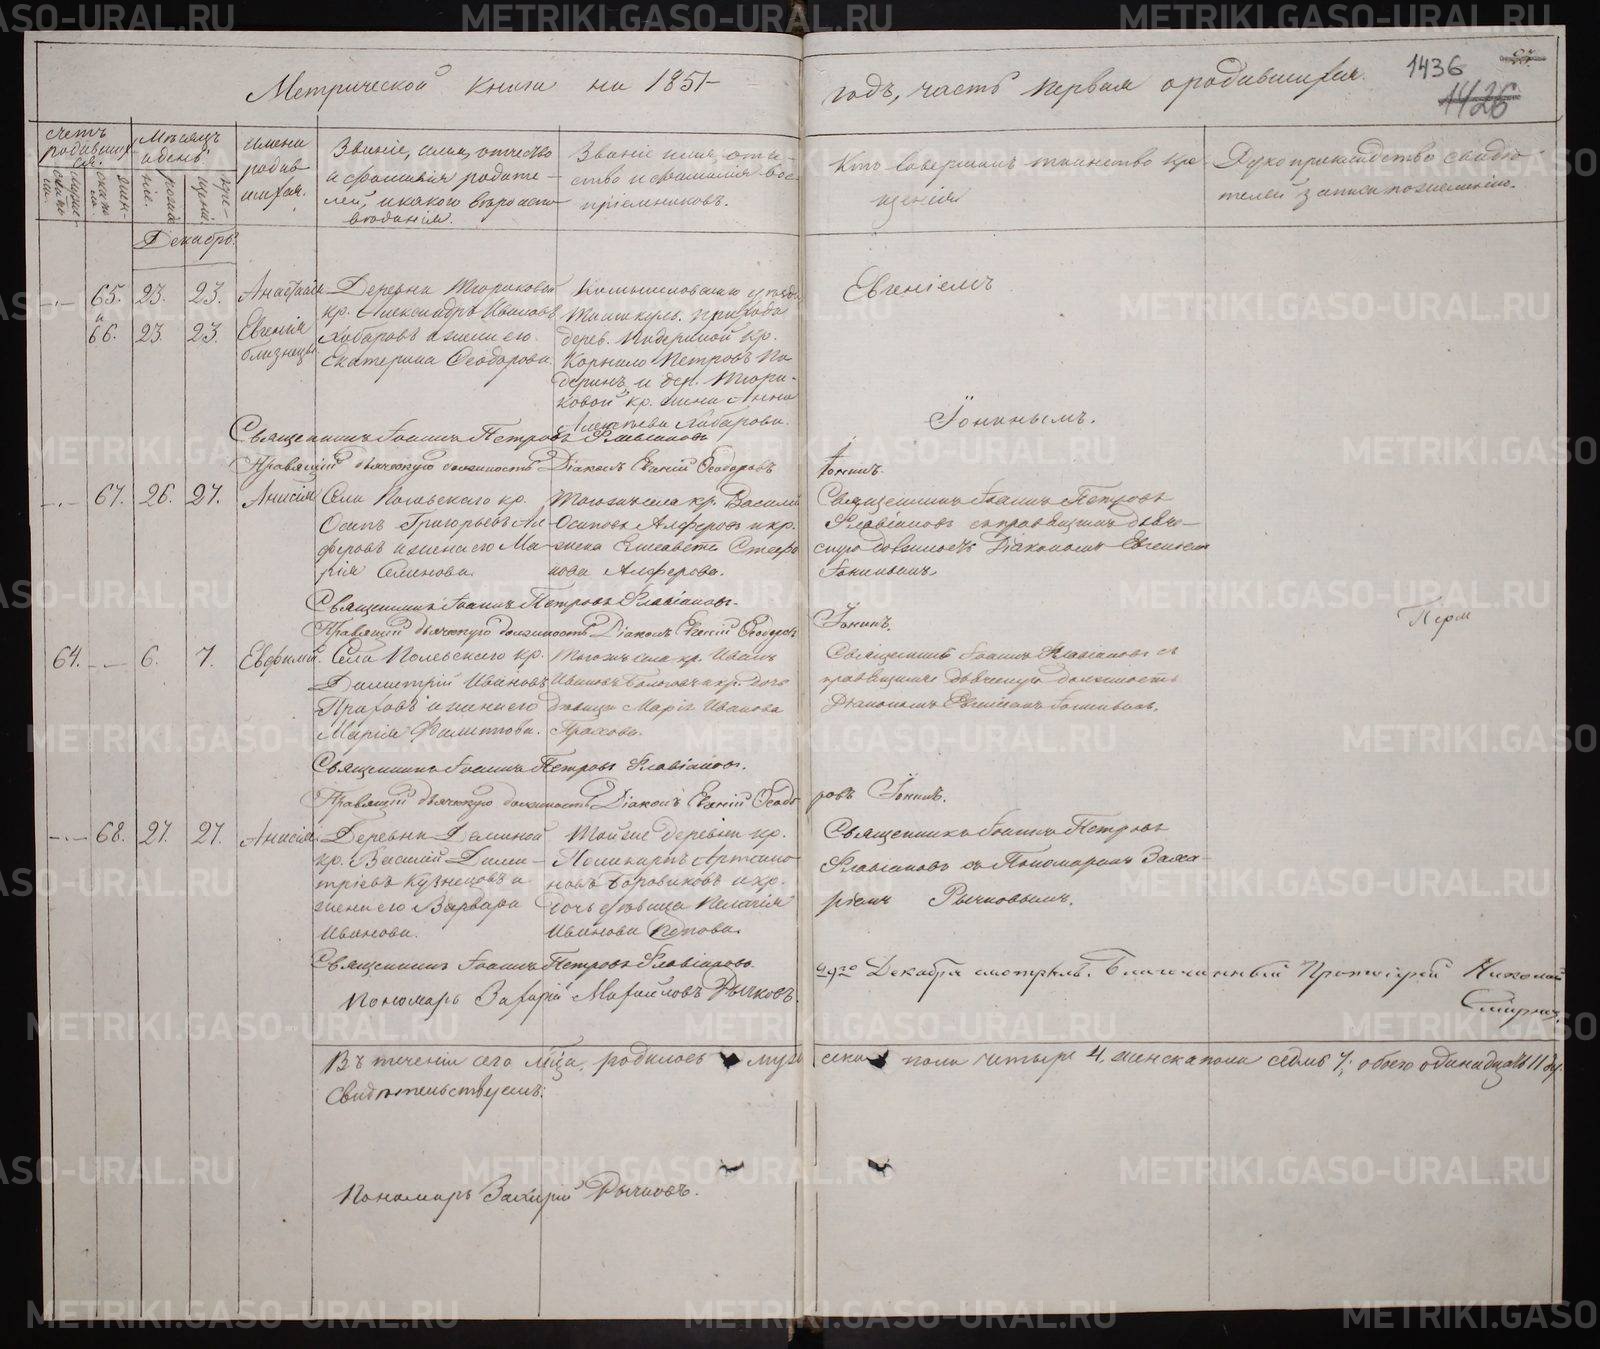 Метрической книги на 1851
годъ, часть первая о родившихся.
1436
1426
счетъ родившихся.
мужеска
женска
Мѣсяцъ и день
рожденіе.
крещеніе
имена родившихся.
Званіе, имя, отчество
и фамилія родите-
лей, и какого вѣроис-
повѣданія.
Званіе имя, отче-
ство и фамилія вос-
пріемниковъ.
Кто совершалъ таинство кре-
щенія
Рукоприкладство свидѣ-
телей записи по желанію.
Декабрь
65. 23. 23. Анастасія
и
66. 23 23. Евгенія
близнецы
Деревни
кр. Александръ Ивановъ
Хабаровъ и жена его
Екатерина Ѳеодорова.
Камышловскаго уѣзда
прихода
дерев. кр.
Корнило Петровъ
и дер.
ковой кр. жена Анна
Хабарова.
Евгеніемъ
Іонинымъ.
Священникъ Іоаннъ Петровъ Флавіановъ
Правящій дьяческую должность Діаконъ Евгеній Ѳеодоровъ
Іонинъ.
67. 26. 27. Анисія
Села кр.
Осипъ Григорьевъ Ал-
феровъ и жена его Ма-
рія Семенова.
Тогожъ села кр. Василій
Осиповъ Алферовъ и кр.
жена Елисавета Стефа-
нова Алферова.
Священникъ Іоаннъ Петровъ
Флавіановъ съ правящимъ дьяче-
скую должность Діакономъ Евгеніемъ
Іонинымъ.
Священникъ Іоаннъ Петровъ Флавіановъ.
Правящій дьяческую должность Діаконъ Евгеній Ѳеодоровъ
Іонинъ.
64. 6. 7. Евфимій.
Села кр.
Димитрій Ивановъ
Праховъ и жена его
Марія Филиппова.
Тогожъ села кр. Иванъ
Ивановъ и кр. дочь
дѣвица Марія Иванова
Прахова.
Священникъ Іоаннъ Флавіановъ съ
правящимъ дьяческую должность
Діакономъ Евгеніемъ Іонинымъ.
Перм
Священникъ Іоаннъ Петровъ Флавіановъ.
Правящій дьяческую должность Діаконъ Евгеній Ѳеодо-
ровъ Іонинъ.
68. 27. 27. Анисія.
Деревни Деминой
кр. Василій Дими-
тріевъ Кузнецовъ и
жена его Варвара
Иванова.
Тойже деревни кр.
Поликарпъ Артамо-
новъ Боровиковъ и кр.
дочь дѣвица Пелагія
Иванова Попова.
Священникъ Іоаннъ Петровъ
Флавіановъ съ Пономаремъ Заха-
ріемъ Рычковымъ.
Священникъ Іоаннъ Петровъ Флавіановъ
Пономарь Захарій Михайловъ Рычковъ.
29го Декабря смотрѣлъ. Благочинный Протоіерей Николай
Смирновъ.
Въ теченіи сего мѣсяца, родилось мужеска пола четыре 4, женска пола семь 7; обоего одинадцать 11 ду.
Свидѣтельствуемъ:
Пономарь Захарій Рычковъ.
METRIKI.GASO-URAL.RU